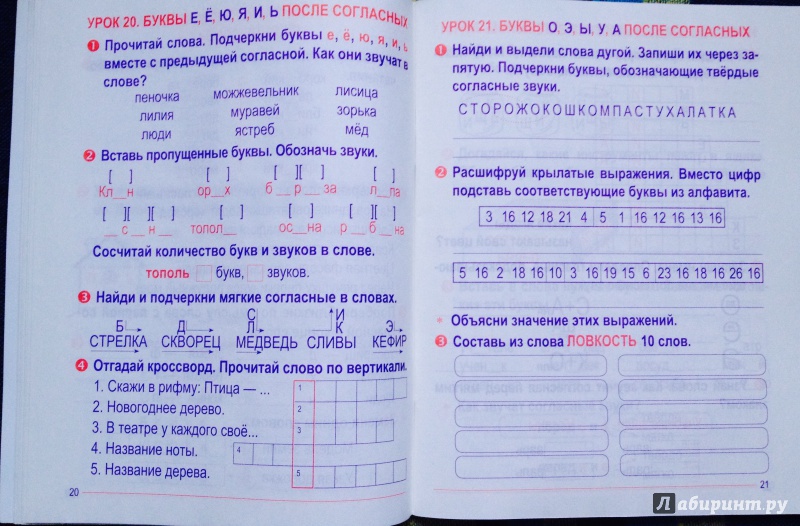 УРОК 20. БУКВЫ Е, Ё, Ю, Я, И, Ь ПОСЛЕ СОГЛАСНЫХ
1 Прочитай слова. Подчеркни буквы е, ё, ю, я, и, ь
вместе с предыдущей согласной. Как они звучат в
слове?
пеночка можжевельник лисица
лилия муравей зорька
люди ястреб мёд
2 Вставь пропущенные буквы. Обозначь звуки.
[ ] [ ] [ ][ ] [ ]
Кл__н ор__х б__р__за л__па
[ ][ ][ ] [ ] [ ] [ ][ ]
__с__н__ топол__ ос__на р__б__на
Сосчитай количество букв и звуков в слове.
тополь букв, звуков.
3 Найди и подчеркни мягкие согласные в словах.
Б Д С Л И К Э
СТРЕЛКА СКВОРЕЦ МЕДВЕДЬ СЛИВЫ КЕФИР
4 Отгадай кроссворд. Прочитай слово по вертикали.
1. Скажи в рифму: Птица — ...
2. Новогоднее дерево.
3. В театре у каждого своё...
4. Название ноты.
5. Название дерева.
1
2
3
4
5
20
УРОК 21. БУКВЫ О, Э, Ы, У, А ПОСЛЕ СОГЛАСНЫХ
1 Найди и выдели слова дугой. Запиши их через за-
пятую. Подчеркни буквы, обозначающие твёрдые
согласные звуки.
СТОРОЖОКОШКОМПАСТУХАЛАТКА
2 Расшифруй крылатые выражения. Вместо цифр
подставь соответствующие буквы из алфавита.
3 16 12 18 21 4 5 1 16 12 16 13 16
5 16 2 18 16 10 3 16 19 15 6 23 16 18 16 26 16
Объясни значение этих выражений.
3 Составь из слова ЛОВКОСТЬ 10 слов.
21
Лабиринт.ру